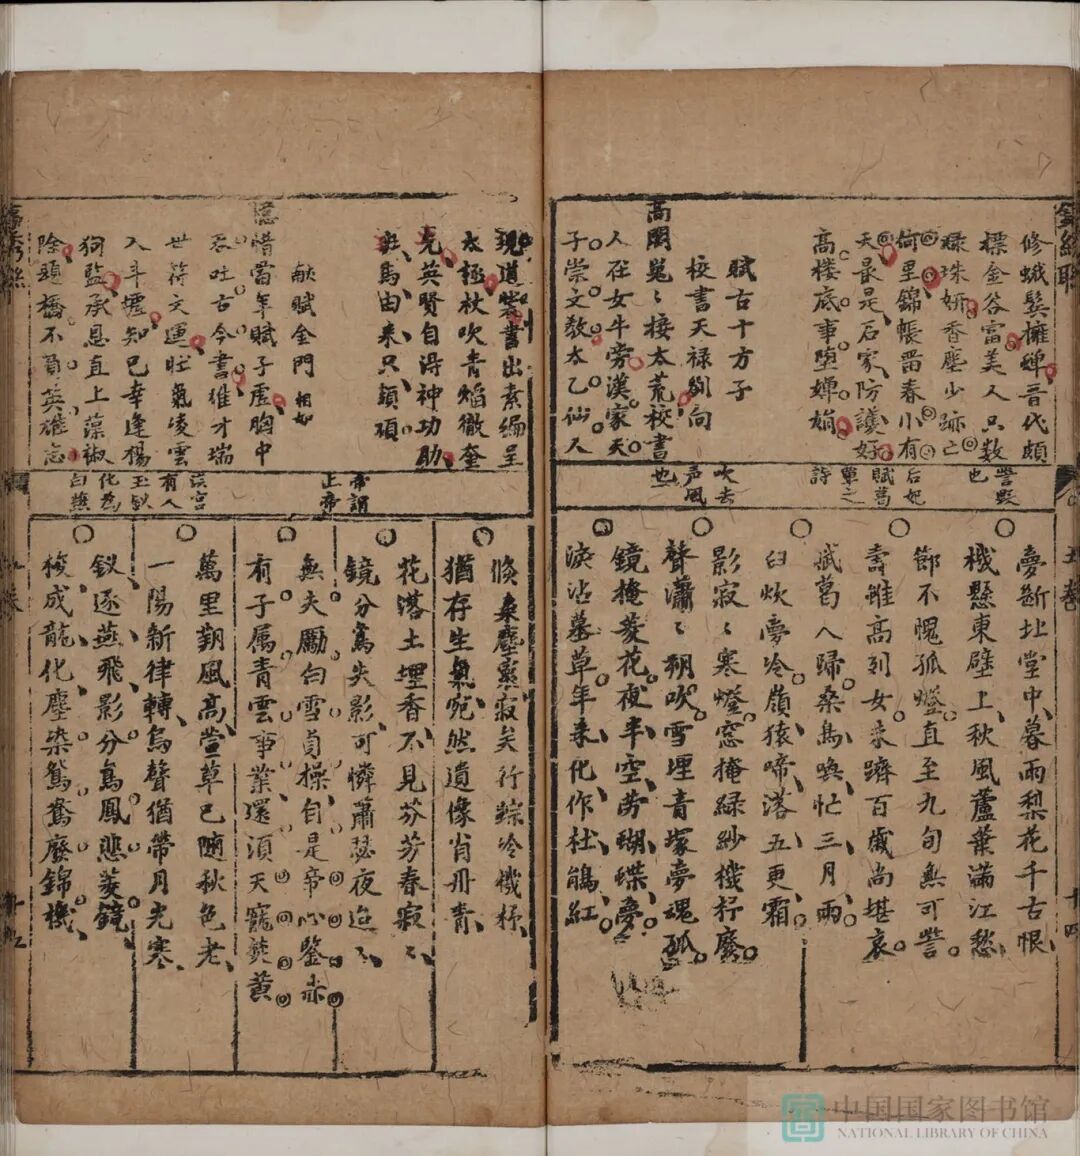 修蛾鬓擁蟬音代頗
標金谷富美人只数
綠珠妍香塵少跡亡
何里錦帳畨春小有
天最是石家防護好
高楼底事堕嬋娟
賦古十方子
校書天禄刘向
高閣嵬〻接太荒校書
人在女牛旁漢家天
子崇文教太乙仙人
譽毁
也
后妃
賦葛
覃之
詩
吹去
声風
也
夢断北堂中暮雨梨花千古恨
機懸東壁上秋風蘆葉滿江愁
節不愧孤燈直至九旬無可訾
壽雖高列女来躋百歲尚堪哀
賦葛人歸桑鳥喚忙三月雨
臼炊夢冷嶺猿啼落五更霜
影寂〻寒燈窓掩緑紗機杼廢
聲瀟〻朔吹雪埋青塚夢魂孤
鏡掩菱花夜半空劳蝴蝶夢
淚沾墓草年来化作杜鵑紅
十四
現道裝書出素編呈
太極杖吹青焰徹奎
光英賢自淂神功助
班馬由来只頡頏
献賦金門 相如
憶惜當年賦子虚胸中
吞吐古今書雄才瑞
世符文運旺氣凌雲
入斗墟知已幸逢楊
狗監承恩直上藻淑
除題橋不負英雄志
帝謂
上帝
漢宮
有人
玉釵
化為
白燕
倏桑塵寂寂矣行踪冷機杼
猶存生氣宛然遺像肖丹青
花落土埋香不見芬芳春寂〻
鏡分鸞失影可憐蕭瑟夜迢〻
無夫勵白雪貞操自是帝心鑒赤
有子属青雲事業還湏天寵焚黄
萬里朔風高堂草已随秋色老
一陽新律轉烏聲猶帶月光寒
釵逐燕飛影分鳥鳳悲菱鏡
梭成龍化塵染鴛鴦廢錦機
中国国家图书馆
NATIONAL LIBRARY OF CHINA